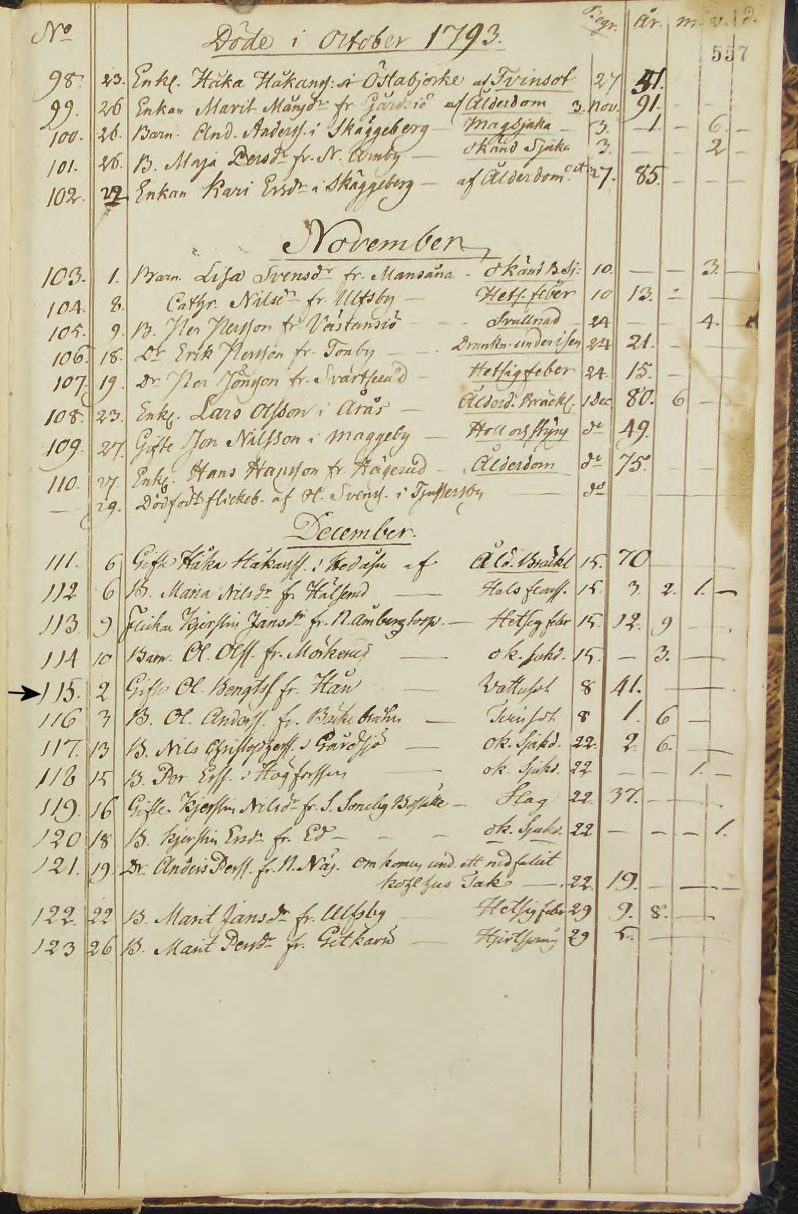 No Döde i October 1793. Begr. år. m. v. d.
557
98. 23. Enkl. Håka Håkanss: i Östabjörke af Tvinsot 27 51.
99. 26 Enkan Marit Månsdr fr Gårdsiö af Ålderdom 3. Nov. 91. - -
100. 26. Barn. And. Anderss. i Skäggeberg — Magsjuka - 3. - 1. - 6. -
101. 26. B. Maja Persdr fr. N. Åmby — okänd Sjuka 3. - - 2 -
102. 27 Enkan Kari Ersdr i Skäggeberg — af Ålderdom 27. 85. - - -
November
103. 1. Barn. Lisa Svensdr fr. Mansåna - okänd B. Sj: 10. — - 3.
104. 8. Cathr. Nilsdr fr Ulfsby — Hets. feber 10 13. -
105. 9. B. Per Persson fr Västansiö - - Svullnad 24 — - 4.
106. 18. Dr. Erik Persson fr. Tonby - - Drunkn. under isen 24 21. -
107. 19. Dr Per Jönsson fr. Svartserud - Hetsig feber 24. 15. -
108. 23. Enkl. Lars Olsson i Arås — Ålderd. Bräckl. 1 Dec 80. 6 -
109. 27. Gifte Jon Nilsson i Maggeby — Håll och styng do 49.
110. 27. Enkl. Hans Hansson fr Hägerud - Ålderdom do 75.
— 29. Dödfödt flickeb. af Ol. Svenss. i — do
December.
111. 6 Gifte Håka Håkanss. i af Åld. Bräckl 15. 70
112 6 B. Maria Nilsdr fr Hälserud — Hals 15. 3. 2. 1. -
113 9 Flickan Kjerstin Jansdr fr. N. Åmbergstorp. — Hetsig feber 15 12. 9 - -
114 10 Barn. Ol. Olss. fr. Mörkerud — ok. sjukd. 15. - 3. -
115. 2 Gifte Ol. Bengtss fr. Hån — Vattusot 8 41. — —
116 3 B. Ol. Anderss. fr. — Tvinsot 8 1. 6 -
117. 13 B. Nils Christophers. i Gårdsjö - ok. Sjukd. 22. 2 6. -
118 15 B. Per Erss. i Högforssen - ok. Sjukd. 22 - - 1. -
119. 16 Gifte. Kjerstin Nilsdr fr. S. — Slag 22. 37. - -
120 18 B. Kjerstin Ersdr fr. Ed - - - ok. Sjukd. 22 — - - 1.
121. 19. Dr. Anders Perss. fr. N. Näs. omkommen und. ett nedfallit
kohlhus Tak — 22. 19. - - -
122. 22 B. Marit Jansdr fr. Ulfsby — Hetsig feber 29 9. 8. —
123 26 B. Marit Persdr fr. — 29 5. —